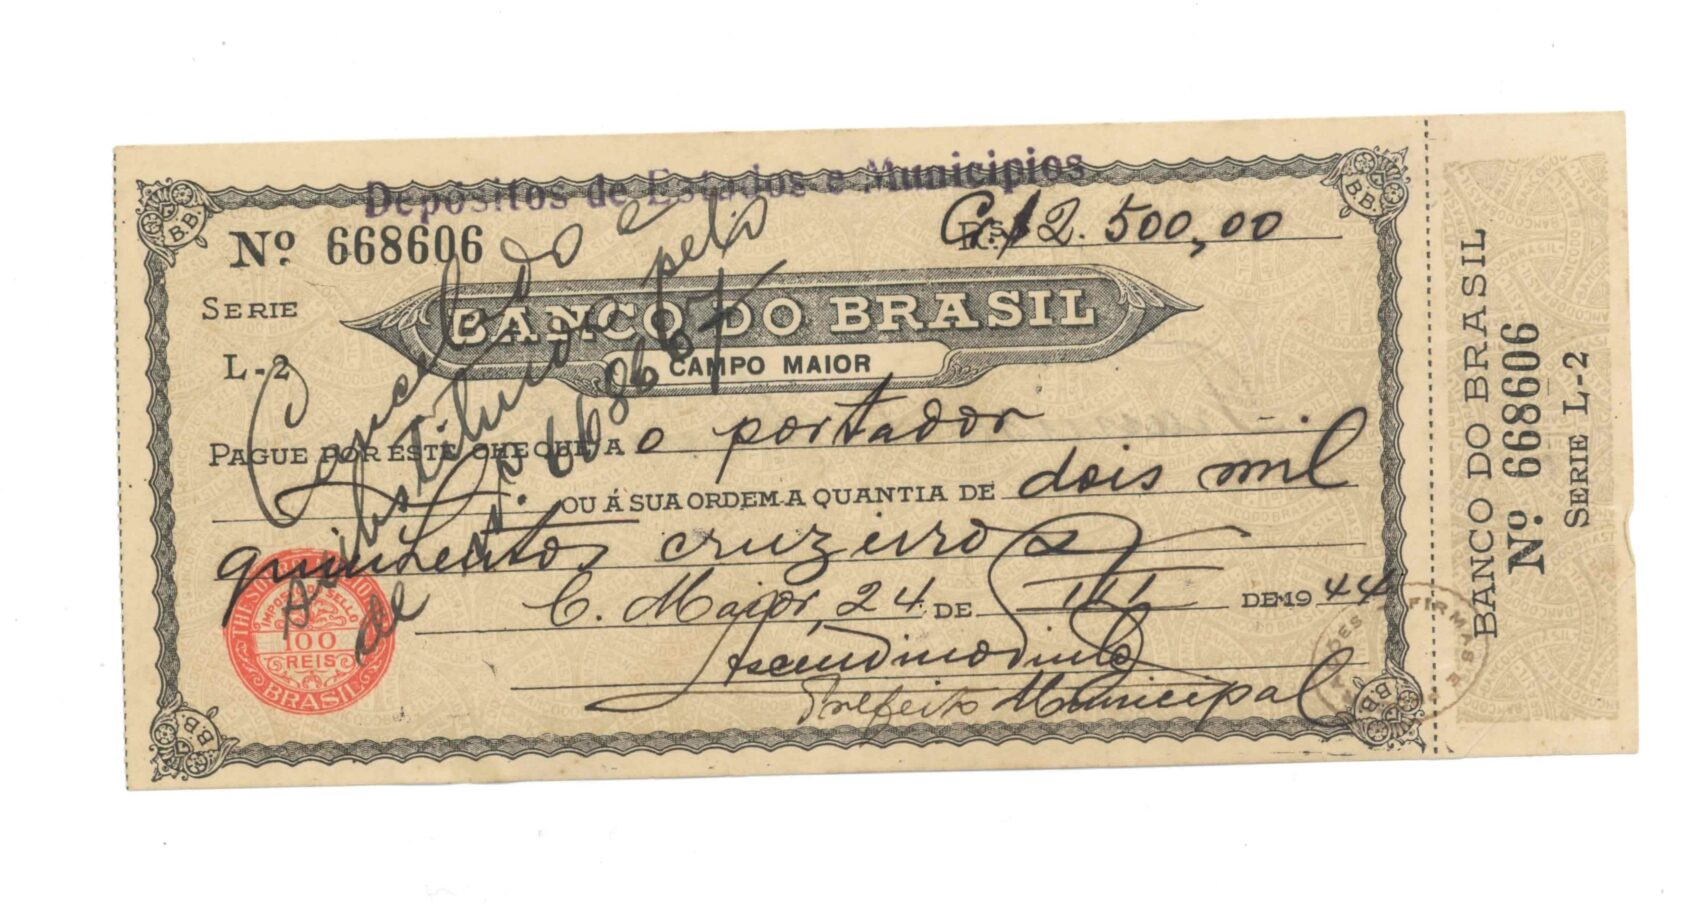 Depósitos de Estados e Municipios
Nº 668606
Rs Cr$ 2.500,00
SERIE
L-2
BANCO DO BRASIL
CAMPO MAIOR
PAGUE POR ESTE CHEQUE A o portador
OU Á SUA ORDEM A QUANTIA DE dois mil
quinhentos cruzeiros
C. Maior, 24 DE III DE 1944
Prefeito Municipal
Cancelado e
substituido pelo
de nº 668607
THESOURO NACIONAL
IMPOSTO DO SELLO
100
REIS
BRASIL
B.B.
B.B.
B.B.
B.B.
FIRMAS E
BANCO DO BRASIL
Nº 668606
SERIE L-2